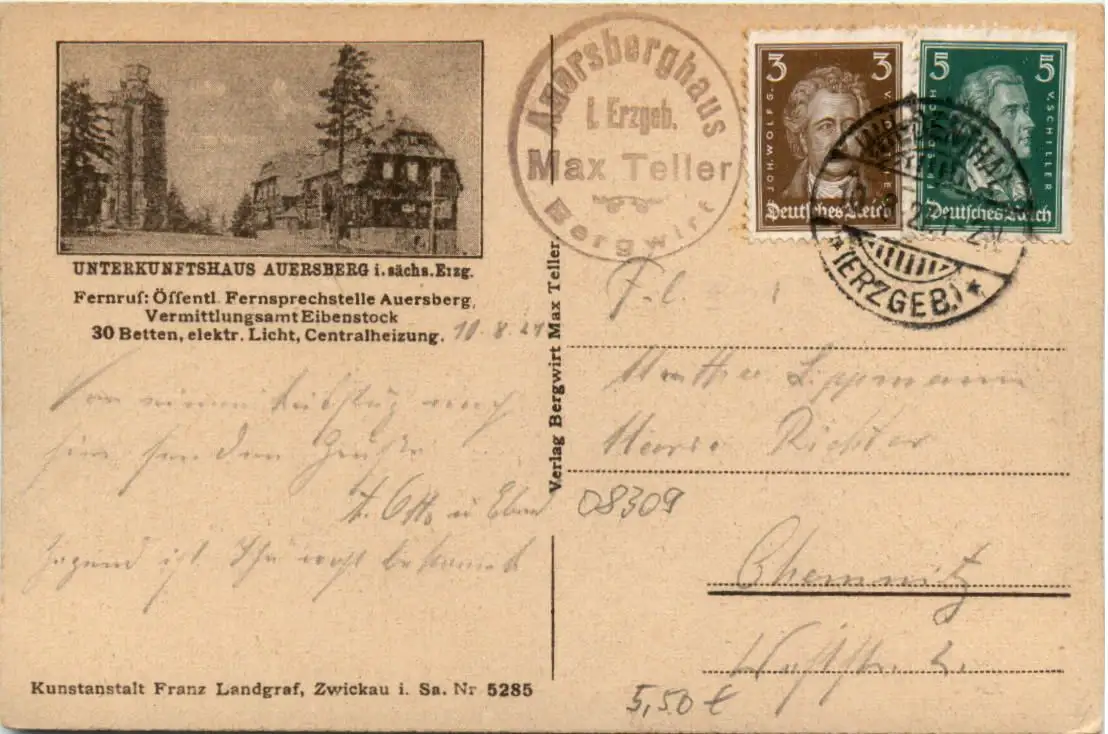 UNTERKUNFTSHAUS AUERSBERG i. sächs. Erzg.
Fernruf: Öffentl. Fernsprechstelle Auersberg,
Vermittlungsamt Eibenstock
30 Betten, elektr. Licht, Centralheizung.
10.8.27
hier senden Grüße
ist Ihr wohl bekannt
Kunstanstalt Franz Landgraf, Zwickau i. Sa. Nr 5285
Verlag Bergwirt Max Teller
Auersberghaus
i. Erzgeb.
Max Teller
Bergwirt
3 3
JOH. WOLFG. V.
Deutsches Reich
5 5
FRIEDRICH V. SCHILLER
Deutsches Reich
(ERZGEB.)
Frl.
Martha Lippmann
Marie Richter
08309
Chemnitz
5,50 €